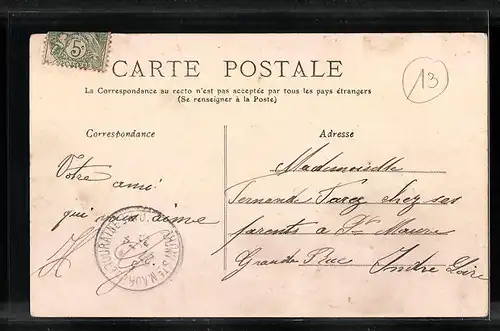 5c
13
CARTE POSTALE
La Correspondance au recto n'est pas acceptée par tous les pays étrangers
(Se renseigner à la Poste)
Correspondance
Adresse
Votre ami
qui vous aime
H
Mademoiselle
Fernande chez ses
parents à Ste Maure
Grande Rue Indre Loire